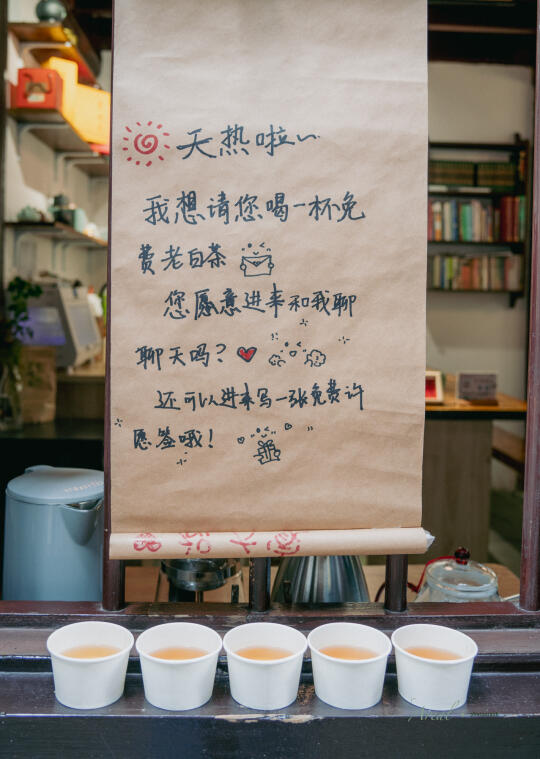 天热啦~
我想请您喝一杯免
费老白茶
您愿意进来和我聊
聊天吗？
还可以进来写一张免费许
愿签哦！